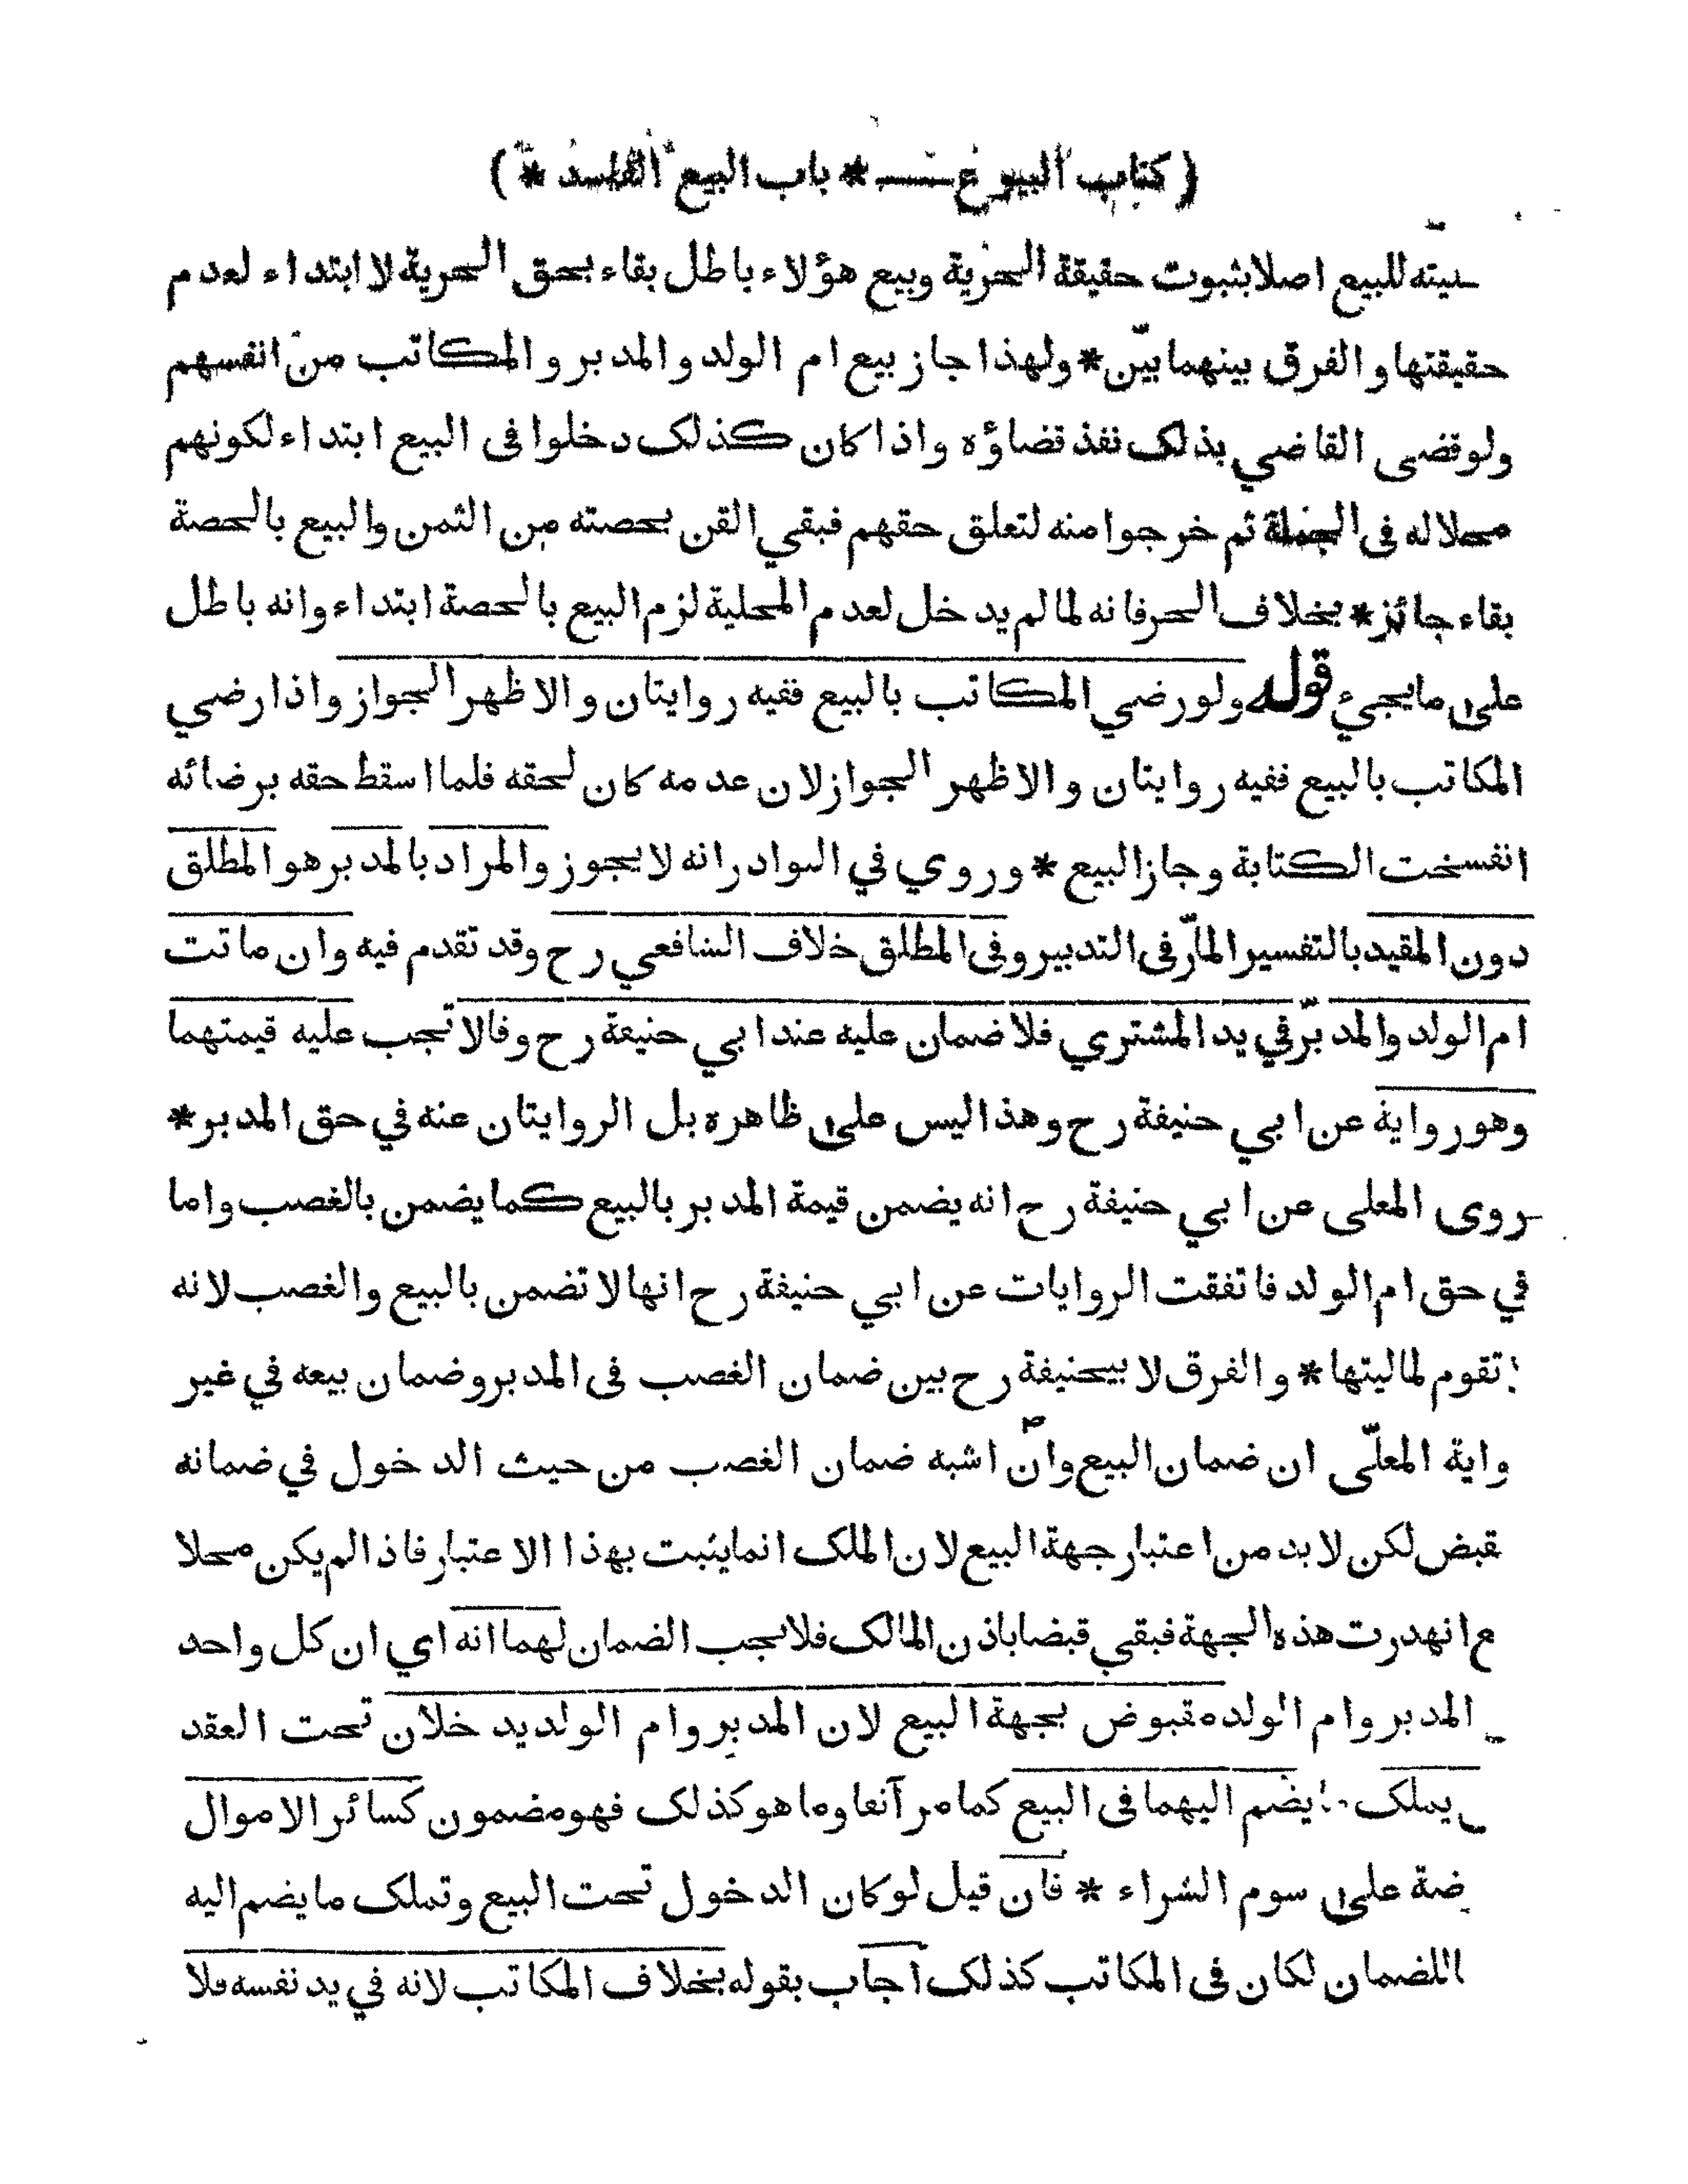 ( كتاب البيوع — * باب البيع الفاسد * )
ـيته للبيع اصلا بثبوت حقيقة الحرية وبيع هؤلاء باطل بقاء بحق الحرية لا ابتداء لعدم
حقيقتها والفرق بينهما بيّن * ولهذا جاز بيع ام الولد والمدبر والمكاتب من انفسهم
ولو قضى القاضي بذلك نفذ قضاؤه واذا كان كذلك دخلوا فى البيع ابتداء لكونهم
محلا له فى الجملة ثم خرجوا منه لتعلق حقهم فبقي القن بحصته من الثمن والبيع بالحصة
بقاء جائز * بخلاف الحر فانه لما لم يدخل لعدم المحلية لزم البيع بالحصة ابتداء وانه باطل
على ما يجيء قوله ولو رضي المكاتب بالبيع ففيه روايتان والاظهر الجواز واذا رضي
المكاتب بالبيع ففيه روايتان والاظهر الجواز لان عدمه كان لحقه فلما اسقط حقه برضائه
انفسخت الكتابة وجاز البيع * وروي في النوادر انه لا يجوز والمراد بالمدبر هو المطلق
دون المقيد بالتفسير المارّ فى التدبير وفى المطلق خلاف الشافعي رح وقد تقدم فيه وان ماتت
ام الولد والمدبّر في يد المشتري فلا ضمان عليه عند ابي حنيفة رح وقالا تجب عليه قيمتهما
وهو رواية عن ابي حنيفة رح وهذا ليس على ظاهره بل الروايتان عنه في حق المدبر *
روى المعلى عن ابي حنيفة رح انه يضمن قيمة المدبر بالبيع كما يضمن بالغصب واما
في حق ام الولد فاتفقت الروايات عن ابي حنيفة رح انها لا تضمن بالبيع والغصب لانه
تقوم لماليتها * والفرق لابيحنيفة رح بين ضمان الغصب فى المدبر وضمان بيعه في غير
واية المعلّى ان ضمان البيع وانّ اشبه ضمان الغصب من حيث الدخول في ضمانه
قبض لكن لا بد من اعتبار جهة البيع لان الملك انما يثبت بهذا الاعتبار فاذا لم يكن محلا
ع انهدرت هذه الجهة فبقي قبضا باذن المالك فلا يجب الضمان لهما انه اي ان كل واحد
المدبر وام الولد مقبوض بجهة البيع لان المدبر وام الولد يدخلان تحت العقد
يملك يضم اليهما فى البيع كما مر آنفا وما هو كذلك فهو مضمون كسائر الاموال
ضة على سوم الشراء * فان قيل لو كان الدخول تحت البيع وتملك ما يضم اليه
للضمان لكان فى المكاتب كذلك اجاب بقوله بخلاف المكاتب لانه في يد نفسه فلا